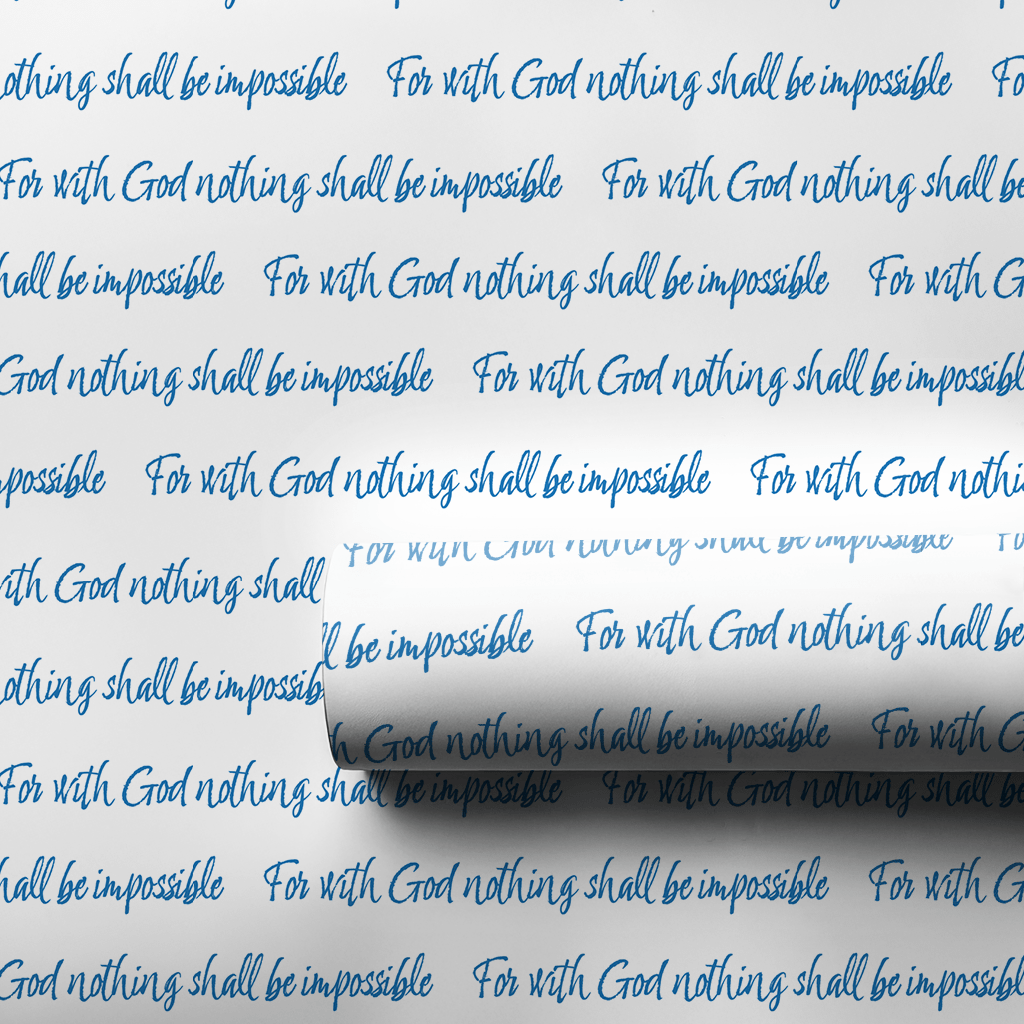 nothing shall be impossible For with God nothing shall be impossible
For with God nothing shall be impossible For with God nothing shall be
shall be impossible For with God nothing shall be impossible For with
God nothing shall be impossible For with God nothing shall be impossible
For with God nothing shall be impossible For with God
with God nothing shall
For with God nothing shall be impossible
be impossible For with God nothing shall be
nothing shall be
God nothing shall be impossible For with
For with God nothing shall be impossible For with God nothing shall be
shall be impossible For with God nothing shall be impossible For with
God nothing shall be impossible For with God nothing shall be impossible